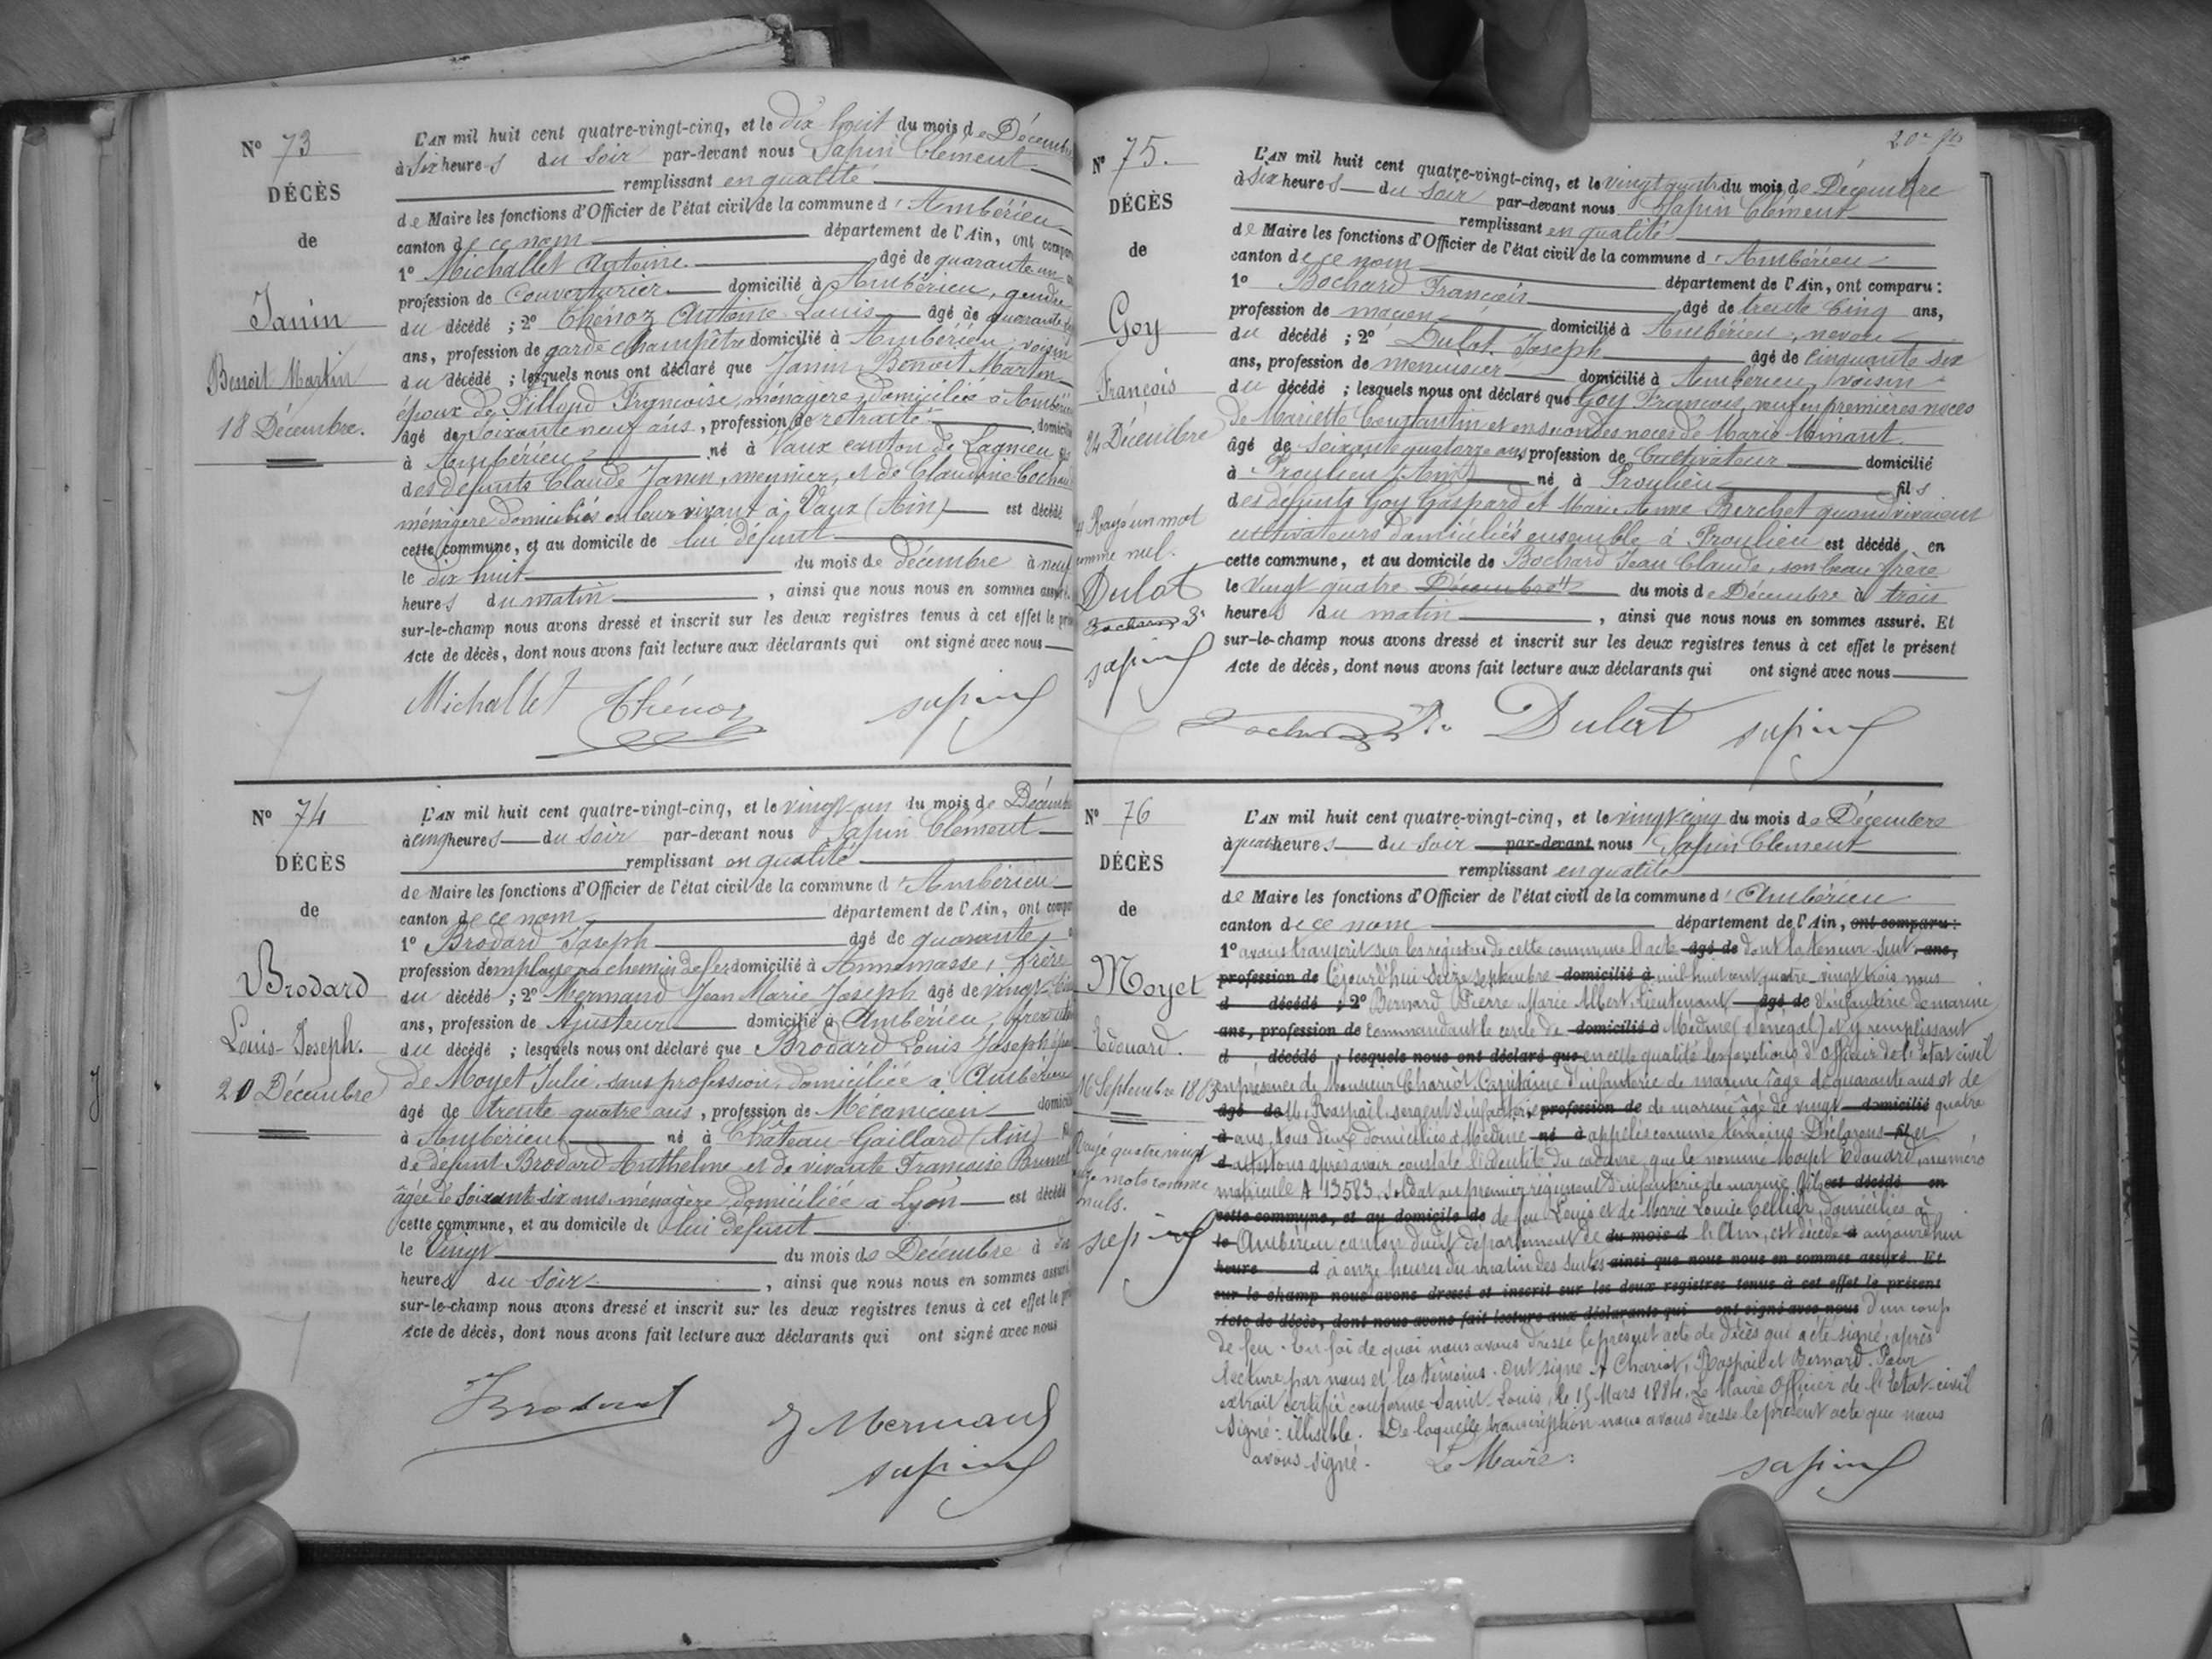 N° 73
DÉCÈS
de
Janin
Benoit Martin
18 Décembre.
L'AN mil huit cent quatre-vingt-cinq, et le dix huit du mois de Décembre
à six heures du soir par-devant nous Sapin Clément
remplissant en qualité
de Maire les fonctions d'Officier de l'état civil de la commune d'Ambérieu
canton de ce nom département de l'Ain, ont compar
1° Michallet Antoine âgé de quarante un
profession de Couverturier domicilié à Ambérieu, gendre
du décédé ; 2° Thénoz Antoine Louis âgé de quarante
ans, profession de garde champêtre domicilié à Ambérieu, voisin
du décédé ; lesquels nous ont déclaré que Janin Benoit Martin
époux de Pilloud Françoise, ménagère, domiciliée à Ambérieu
âgé de soixante neuf ans, profession de retraité domicilié
à Ambérieu né à Vaux canton de Lagnieu fils
des défunts Claude Janin, meunier, et de Claudine Cochard
ménagère domiciliés en leur vivant à Vaux (Ain) est décédé
cette commune, et au domicile de lui défunt
le dix huit du mois de décembre à neuf
heures du matin, ainsi que nous nous en sommes assuré.
sur-le-champ nous avons dressé et inscrit sur les deux registres tenus à cet effet le pré
Acte de décès, dont nous avons fait lecture aux déclarants qui ont signé avec nous
Michallet Thénoz Sapin
N° 74
DÉCÈS
de
Brodard
Louis-Joseph.
20 Décembre
L'AN mil huit cent quatre-vingt-cinq, et le vingt-un du mois de Décembre
à cinq heures du soir par-devant nous Sapin Clément
remplissant en qualité
de Maire les fonctions d'Officier de l'état civil de la commune d'Ambérieu
canton de ce nom département de l'Ain, ont compar
1° Brodard Joseph âgé de quarante
profession d'employé au chemin de fer domicilié à Annemasse, frère
du décédé ; 2° Mermand Jean Marie Joseph âgé de vingt
ans, profession de Ajusteur domicilié à Ambérieu,
du décédé ; lesquels nous ont déclaré que Brodard Louis Joseph époux
de Moyet Julie, sans profession, domiciliée à Ambérieu
âgé de trente-quatre ans, profession de Mécanicien domicilié
à Ambérieu né à Château-Gaillard (Ain) fils
de défunt Brodard Anthelme et de vivante Françoise
âgée de soixante-six ans, ménagère, domiciliée à Lyon est décédé
cette commune, et au domicile de lui défunt
le vingt du mois de Décembre à
heures du soir, ainsi que nous nous en sommes assuré
sur-le-champ nous avons dressé et inscrit sur les deux registres tenus à cet effet le pré
Acte de décès, dont nous avons fait lecture aux déclarants qui ont signé avec nous
Brodard J Mermand
Sapin
N° 75.
DÉCÈS
de
Goy
François
24 Décembre
Rayé un mot
comme nul.
Dulat
Bochard
Sapin
L'AN mil huit cent quatre-vingt-cinq, et le vingt quatre du mois de Décembre
à six heures du soir par-devant nous Sapin Clément
remplissant en qualité
de Maire les fonctions d'Officier de l'état civil de la commune d'Ambérieu
canton de ce nom département de l'Ain, ont comparu :
1° Bochard François âgé de trente cinq ans,
profession de maçon domicilié à Ambérieu, neveu
du décédé ; 2° Dulat Joseph âgé de cinquante six
ans, profession de menuisier domicilié à Ambérieu, voisin
du décédé ; lesquels nous ont déclaré que Goy François, veuf en premières noces
de Mariette Constantin et en secondes noces de Marie Minant
âgé de soixante quatorze ans, profession de Cultivateur domicilié
à Proulieu (Ain) né à Proulieu fils
des défunts Goy Gaspard et Marie Anne Berchet quand vivaient
cultivateurs domiciliés ensemble à Proulieu est décédé en
cette commune, et au domicile de Bochard Jean Claude, son beau frère
le vingt quatre Décembre du mois de Décembre à trois
heures du matin, ainsi que nous nous en sommes assuré. Et
sur-le-champ nous avons dressé et inscrit sur les deux registres tenus à cet effet le présent
Acte de décès, dont nous avons fait lecture aux déclarants qui ont signé avec nous
Bochard Dulat Sapin
N° 76
DÉCÈS
de
Moyet
Edouard.
16 Septembre 1883
Rayé quatre vingt
mots comme
nuls.
Sapin
L'AN mil huit cent quatre-vingt-cinq, et le vingt cinq du mois de Décembre
à quatre heures du soir par-devant nous Sapin Clément
remplissant en qualité
de Maire les fonctions d'Officier de l'état civil de la commune d'Ambérieu
canton de ce nom département de l'Ain, ont comparu :
1° avons transcrit sur les registres de cette commune l'acte âgé de dont la teneur suit. ans,
profession de Cejourd'hui seize septembre domicilié à mil huit cent quatre-vingt trois nous
d décédé ; 2° Bernard Pierre Marie Albert, lieutenant âgé de d'infanterie de marine
ans, profession de Commandant le cercle de domicilié à Médine (Sénégal) et y remplissant
d décédé ; lesquels nous ont déclaré que en cette qualité les fonctions d'Officier de l'Etat civil
en présence de Monsieur Chariot, Capitaine d'infanterie de marine âgé de quarante ans et de
âgé de Mr Raspail, sergent d'infanterie profession de de marine âgé de vingt domicilié quatre
à ans, tous deux domiciliés à Médine né à appelés comme témoins. Déclarons fil et
d attestons après avoir constaté l'identité du cadavre, que le nommé Moyet Edouard, numéro
matricule A 13583, soldat au premier régiment d'infanterie de marine, fils est décédé en
cette commune, et au domicile de de feu Louis et de Marie Louise Cellier, domiciliés à
le Ambérieu canton dudit département de du mois d l'Ain, est décédé à aujourd'hui
heure d à onze heures du matin des suites ainsi que nous nous en sommes assuré. Et
sur-le-champ nous avons dressé et inscrit sur les deux registres tenus à cet effet le présent
Acte de décès, dont nous avons fait lecture aux déclarants qui ont signé avec nous d'un coup
de feu. En foi de quoi nous avons dressé le présent acte de décès qui a été signé, après
lecture par nous et les témoins. Ont signé : Chariot, Raspail et Bernard. Pour
extrait certifié conforme Saint-Louis, le 15 Mars 1884. Le Maire Officier de l'Etat-civil
Signé : illisible. De laquelle transcription nous avons dressé le présent acte que nous
avons signé. Le Maire : Sapin